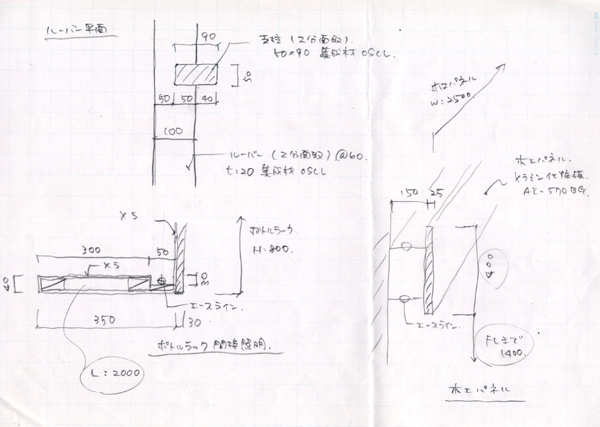 ルーバー平面
90
支柱(2分面取)
50×90 集成材 OSCL
50
50 50 40
100
ルーバー(2分面取)@60
t:20 集成材 OSCL
ホワエパネル
W:2500
ホワエパネル
メラミン化粧板
150 25
×5
300 50
ボトルラック
H:800
×5
エースライン
350 30
ボトルラック 間接照明
L:2000
400
エースライン
FLまで
1400
ホワエパネル